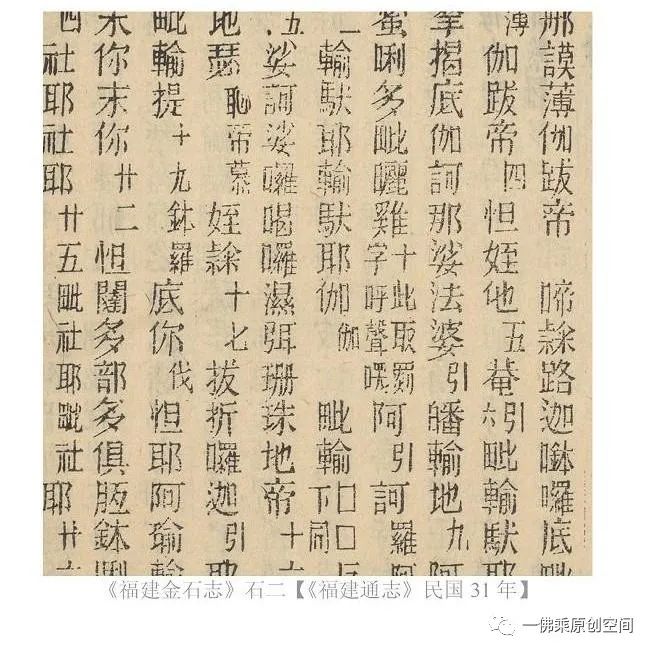 那謨薄伽跋帝 啼隷路迦囉底毗
薄伽跋帝四怛姪他五菴引六毗輸馱耶
拏揭底伽訶那娑法婆引皤輸地九阿
蜜唎多毗曬雞十此取字呼聲阿引訶羅阿
一輸馱耶輸馱耶伽伽 毗輸□□下同
五娑訶娑囉喝囉濕弭珊珠地帝十六
地瑟恥帝慕姪隷十七拔折囉迦引耶
毗輸提十九鉢羅底你伐怛耶阿瑜
末你末你廿二怛闥多部多俱胝鉢唎
四社耶社耶廿五毗社耶毗社耶廿六
《福建金石志》石二【《福建通志》民国31年】
一佛乘原创空间